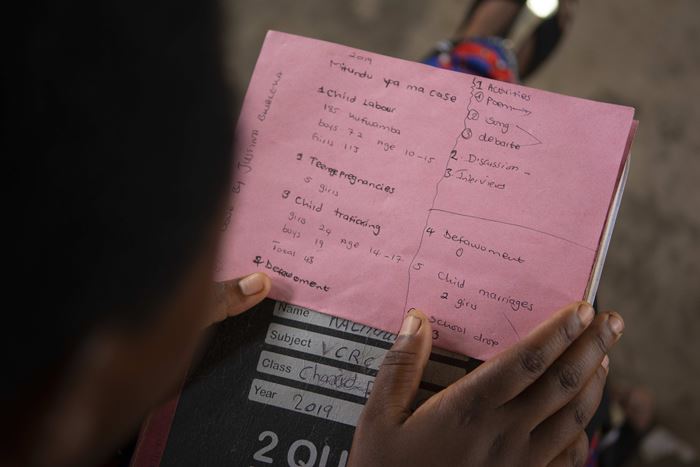 2019
Mitundu ya ma case
1 Child Labour
185 kufwamba
boys 72 Age 10-15
Girls 113
2 Teenage pregnancies
5 girls
3 Child traficking
girls 24
boys 19 Age 14-17
Total 43
4 Defawoment
1 Activities
1 Poem
2 Song
3 debate
2. Discussion
3 Interviews
4 Defawoment
0
5 Child marriages
2 girls
School drop
3
Name
Subject VCRC
Class
Year 2019
2 QU